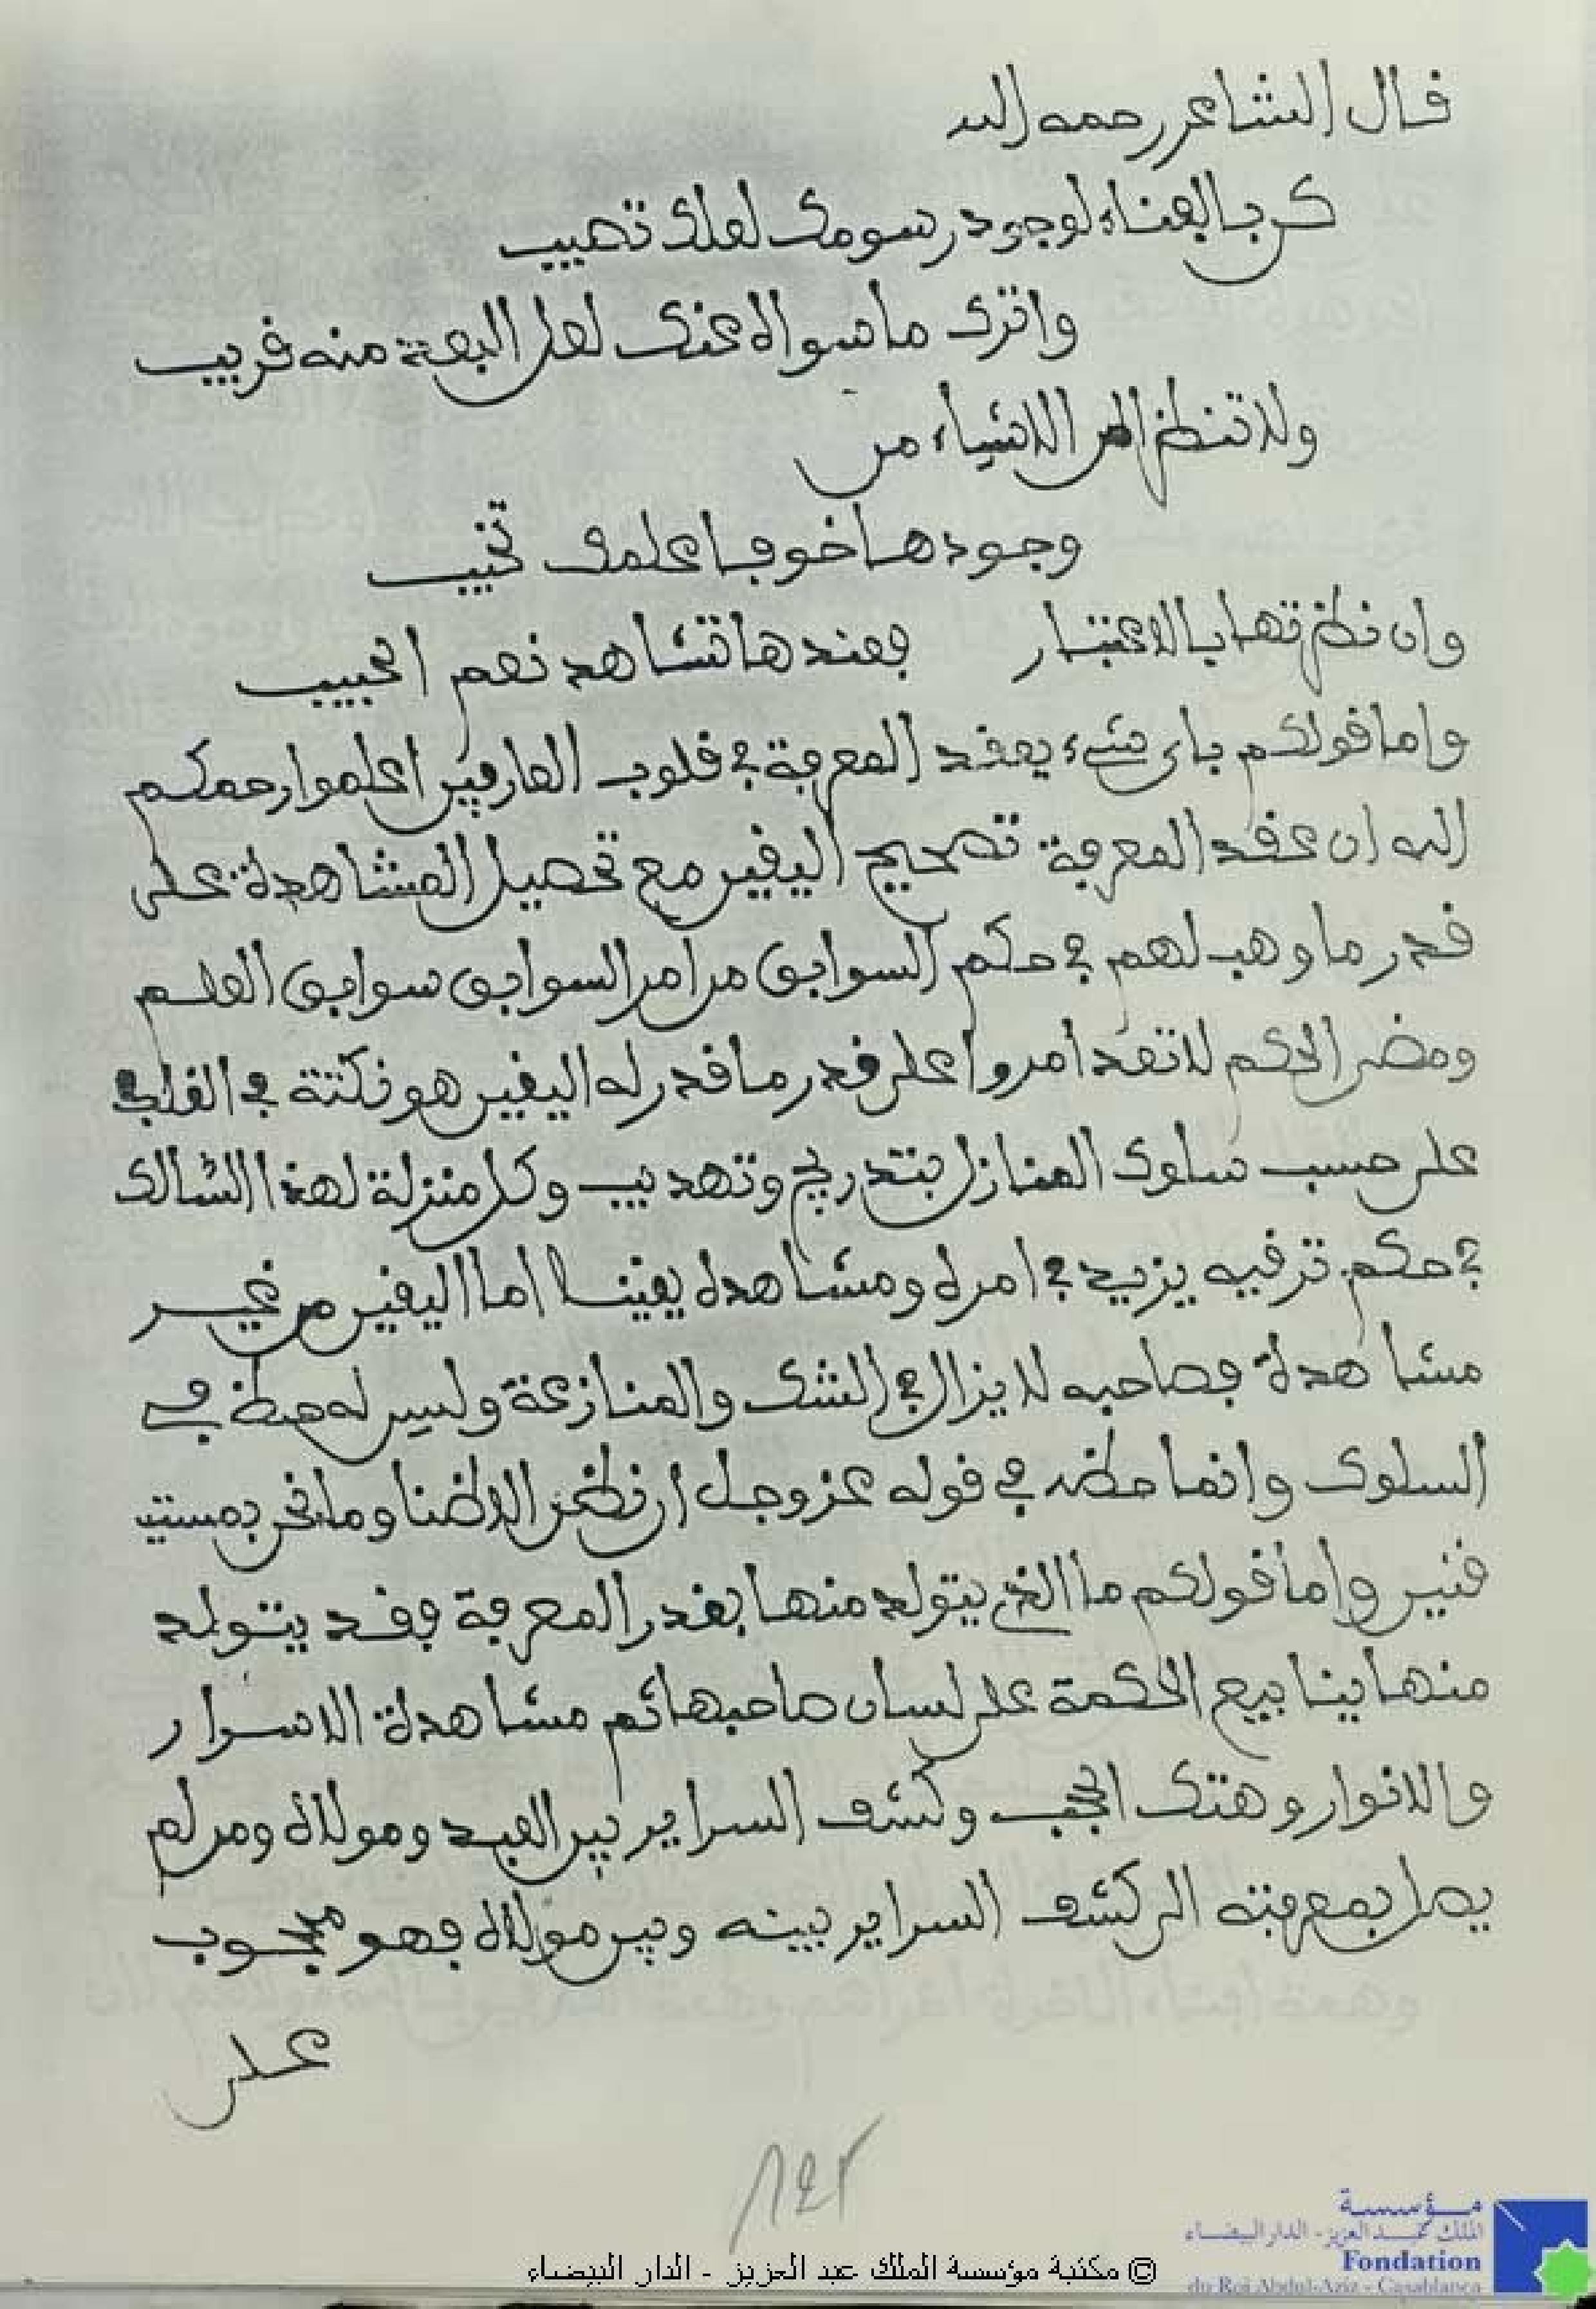 قال الشاعر رحمه الله
كن بالفناء لوجود رسومك لعلك تصيب
واترك ما سواه عنك لعل البعد منه قريب
ولا تنظر إلى الاشياء من
وجودها خوفا علمك تخيب
وان نظرتها بالاعتبار فعندها تشاهد نعم الحبيب
واما قولكم باى شيء يعقد المعرفة في قلوب العارفين اعلموا رحمكم
الله ان عقد المعرفة تصحيح اليقين مع تحصيل المشاهدة على
قدر ما وهب لهم في حكم السوابق من امر السوابق سوابق العلم
ومضى الحكم لا تعد امروا على قدر ما قدر له اليقين هو نكتة في القلب
على حسب سلوك المنازل بتدريج وتهديب وكل منزلة لهذا السالك
في حكم ترقيه يزيد في امره ومشاهدة يقينا اما اليقين من غير
مشاهدة فصاحبه لا يزال في الشك والمنازعة وليس له حظ في
السلوك وانما حظه في قوله عز وجل ان نظن الا ظنا وما نحن بمستيـ
ـقنين واما قولكم ما الذي يتولد منها بقدر المعرفة فقد يتولد
منها ينابيع الحكمة على لسان صاحبها ثم مشاهدة الاسرار
والانوار وهتك الحجب وكشف السراير بين العبد ومولاه ومن لم
يصل بمعرفته الى كشف السراير بينه وبين مولاه فهو محجوب
على
١٤٢
مؤسسة
الملك عبد العزيز - الدار البيضاء
Fondation
du Roi Abdul-Aziz - Casablanca
© مكتبة مؤسسة الملك عبد العزيز - الدار البيضاء